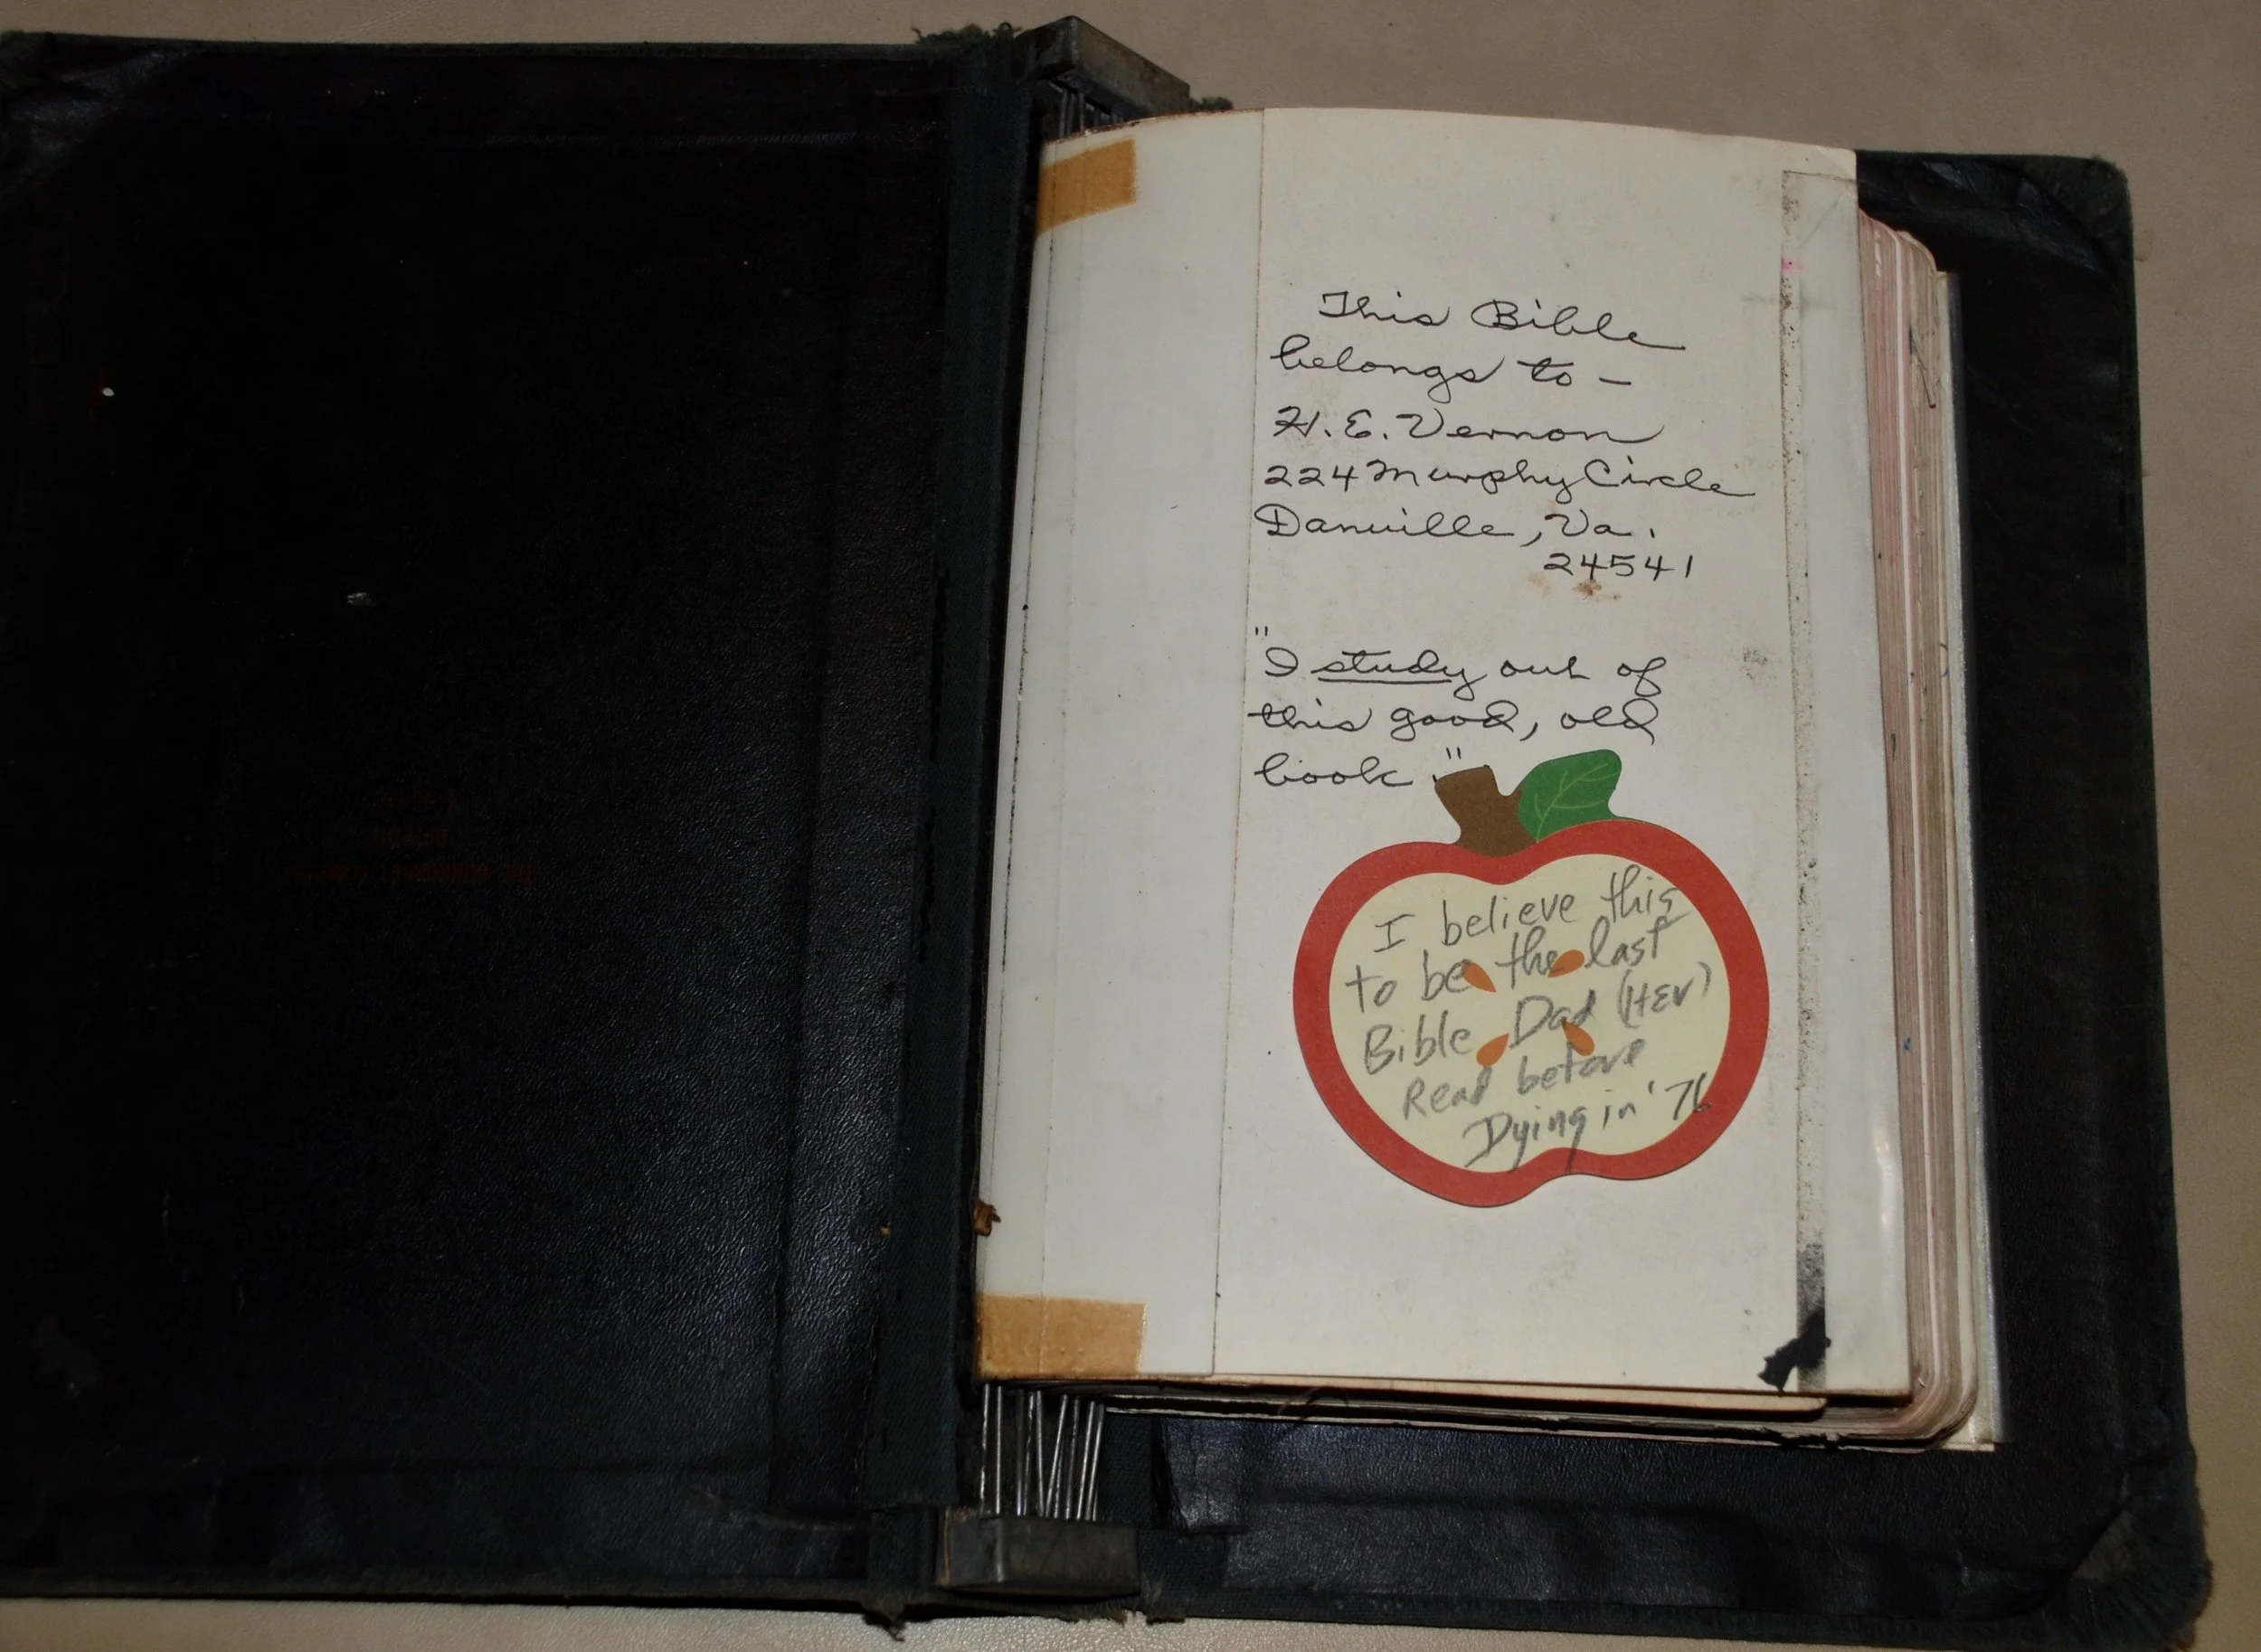 This Bible
belongs to –
H. E. Vernon
224 Murphy Circle
Danville, Va.
24541
"I study out of
this good, old
book."
I believe this
to be the last
Bible Dad (HEV)
Read before
Dying in '76